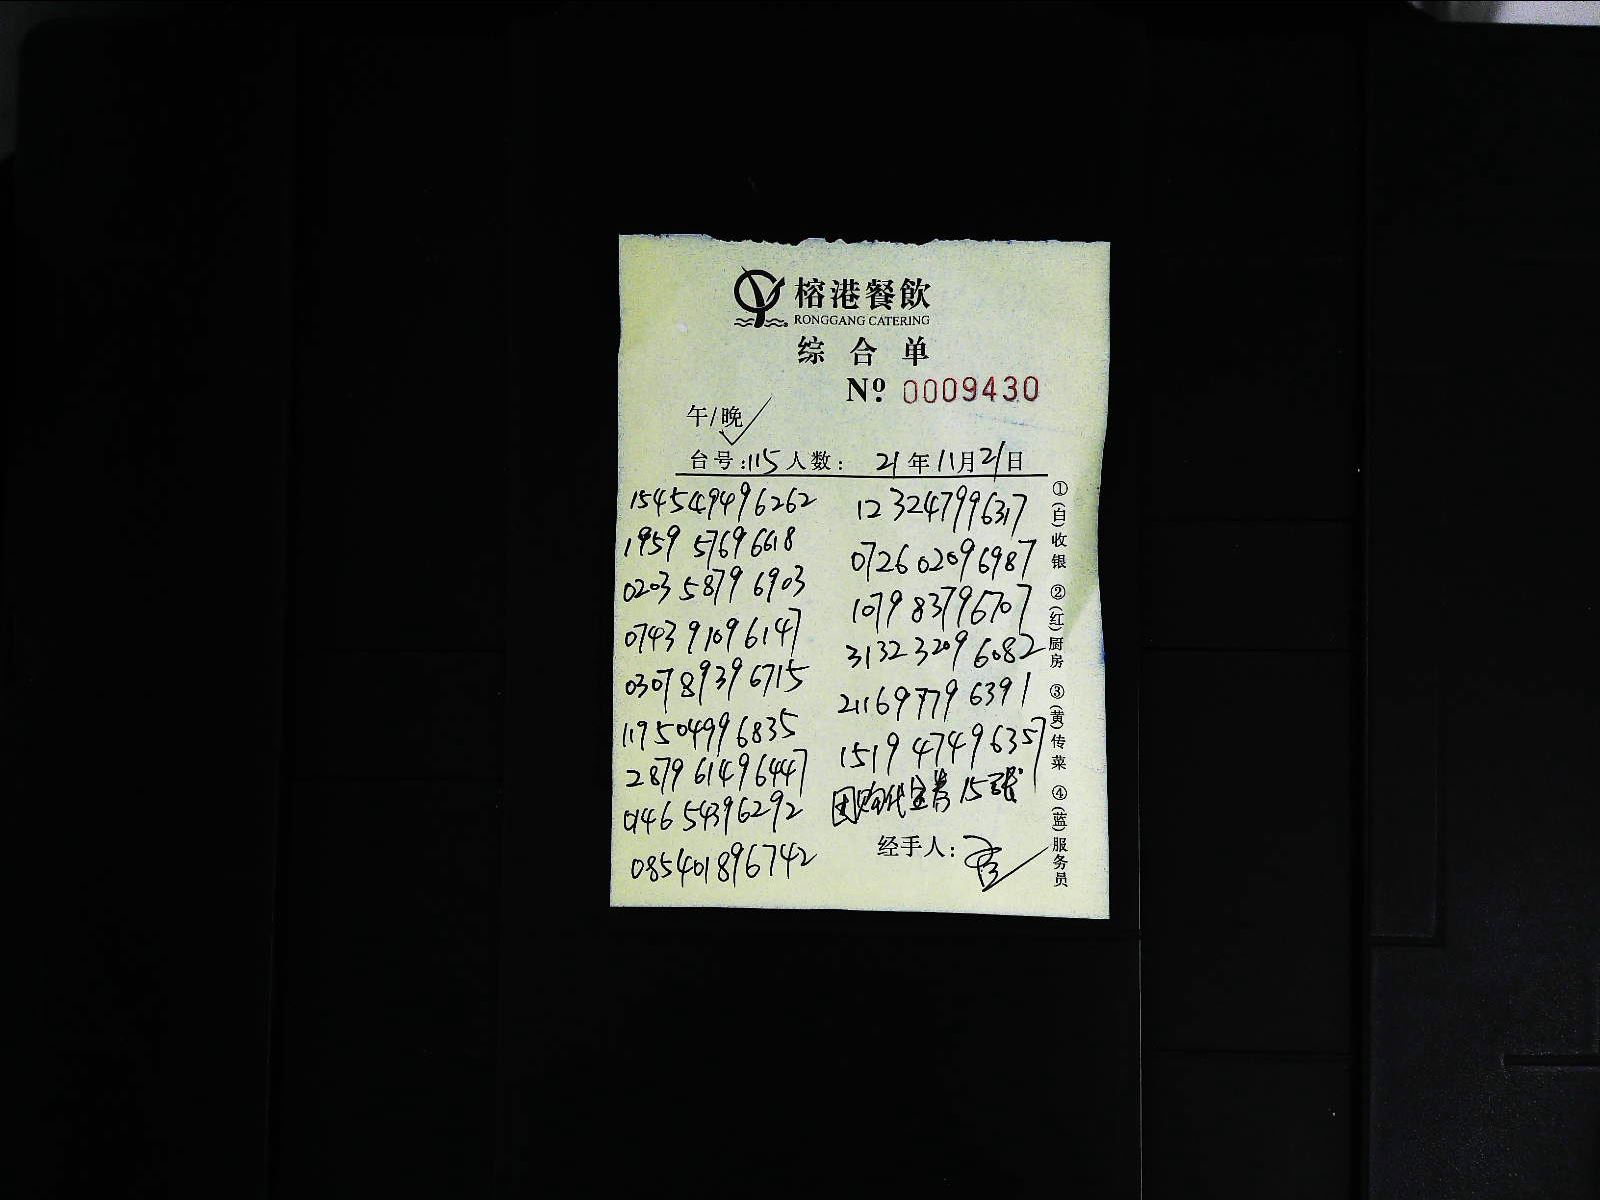 榕港餐飲
RONGGANG CATERING
综合单
Nº 0009430
午/晚
台号:115 人数: 21年11月21日
154549496262
1959 57696618
0203 5879 6903
074391096147
0307 89396715
119504996835
2879 61496447
0146 54396292
085401896742
12 3247996317
0726 02096987
1079 83796707
3132 3209 6082
21169779 6391
1519 47496357
团购代金券 15张
经手人:
①(白)收银 ②(红)厨房 ③(黄)传菜 ④(蓝)服务员